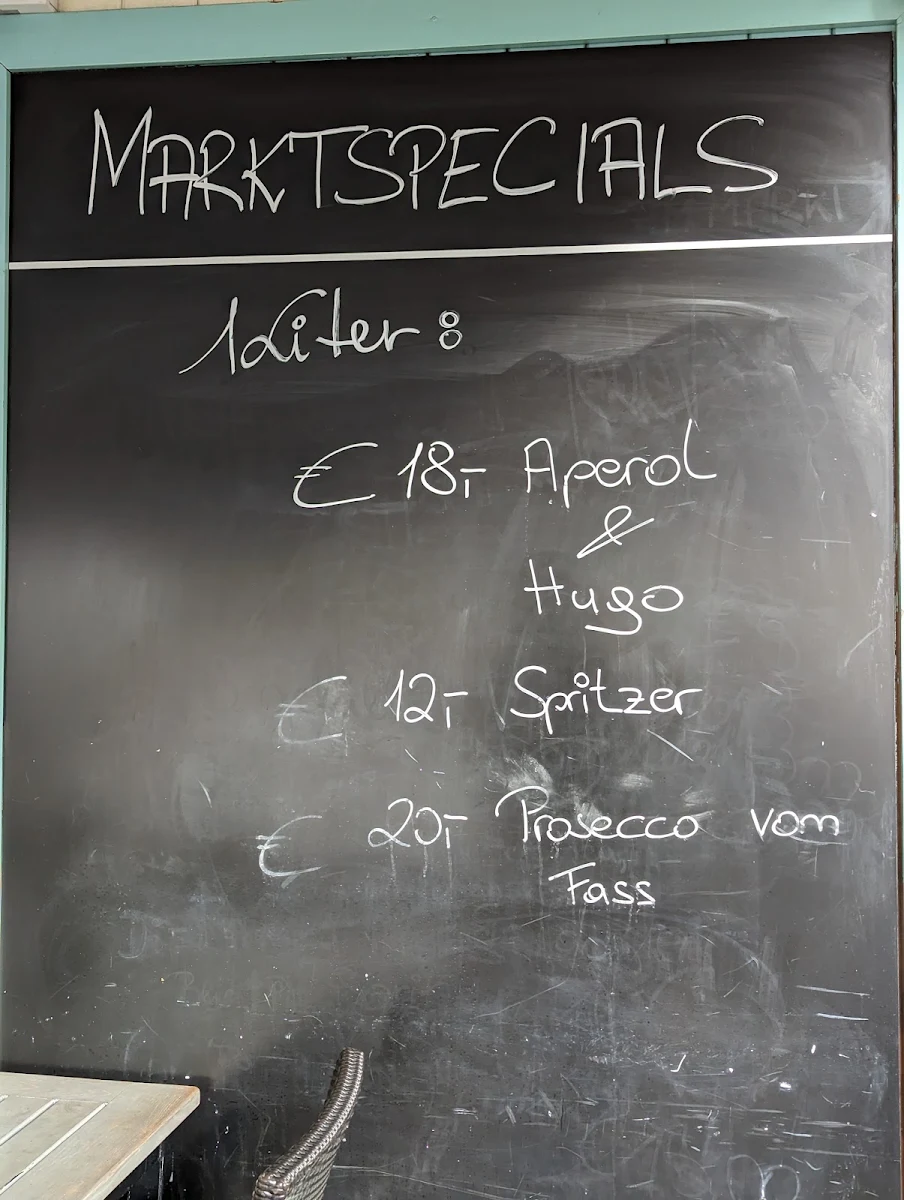 MARKTSPECIALS
1Liter:
€ 18,- Aperol
&
Hugo
€ 12,- Spritzer
€ 20,- Prosecco vom
Fass